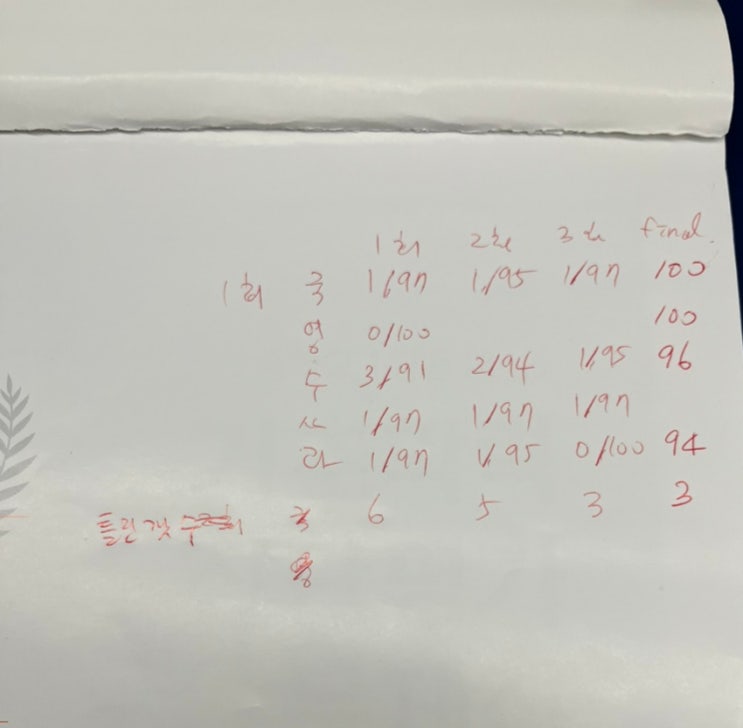 1회 2회 3회 final.
1회 국 1/97 1/95 1/97 100
영 0/100 100
수 3/91 2/94 1/95 96
사 1/97 1/97 1/97
과 1/97 1/95 0/100 94
틀린갯수 6 5 3 3